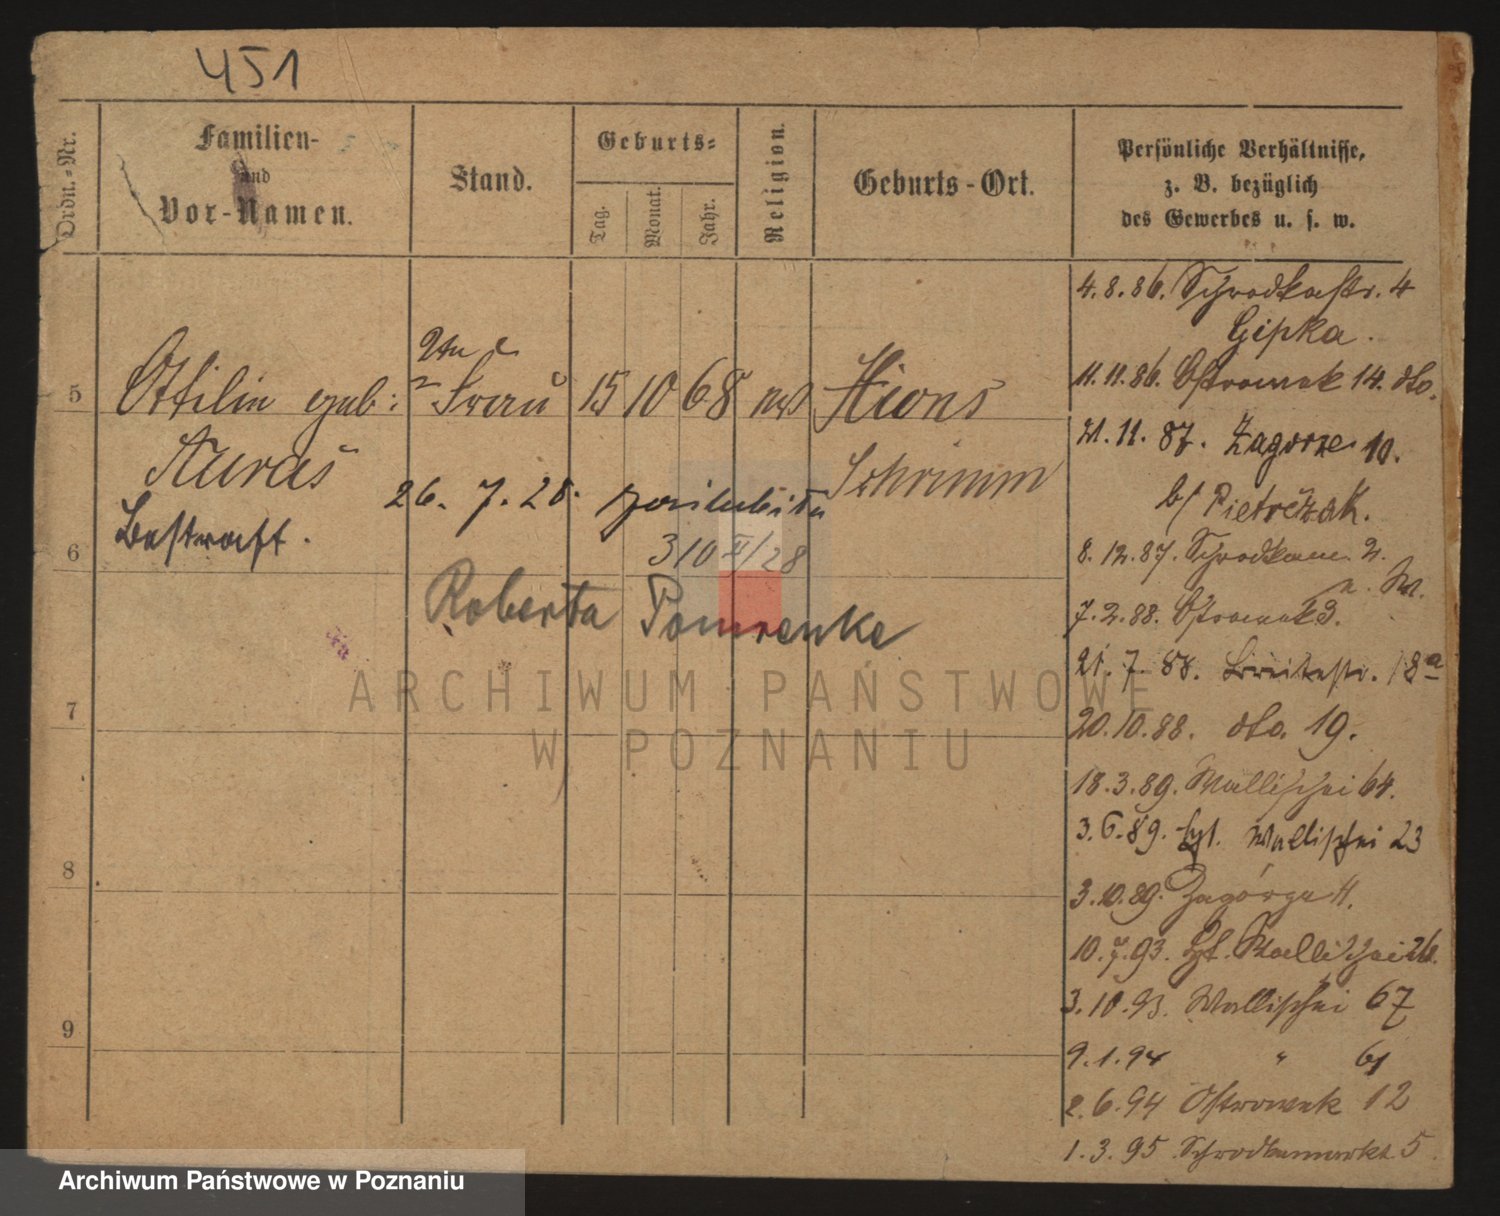 451
Ordn.-Nr.
Familien-
und
Vor-Namen.
Stand.
Geburts-
Tag.
Monat.
Jahr.
Religion.
Geburts-Ort.
Persönliche Verhältnisse,
z. B. bezüglich
des Gewerbes u. s. w.
4.8.86. Schrodkastr. 4
Gipka.
11.11.86. Ostrowek 14. dto.
5 Ottilie geb: 2te Frau 15 10 68 Xions
21.11.87. Zagorze 10.
Auras Schrimm
b/ Pietrczak.
26. 7. 28.
Bestraft.
310 /28
6
8.12.87. Schrodkam. 2.
Roberta Pomrenke
7.2.88. Ostrowek 3.
21.7.88. Breitestr. 18a
7
20.10.88. dto. 19.
18.3.89. Wallischei 64.
3.6.89. Wallischei 23
8
3.10.89. Zagórze
10.7.93. Wallischei 26.
3.10.93. Wallischei 67
9
9.1.94 "
2.6.94 Ostrowek 12
1.3.95 Schrodkamarkt 5.
ARCHIWUM PAŃSTWOWE
W POZNANIU
Archiwum Państwowe w Poznaniu